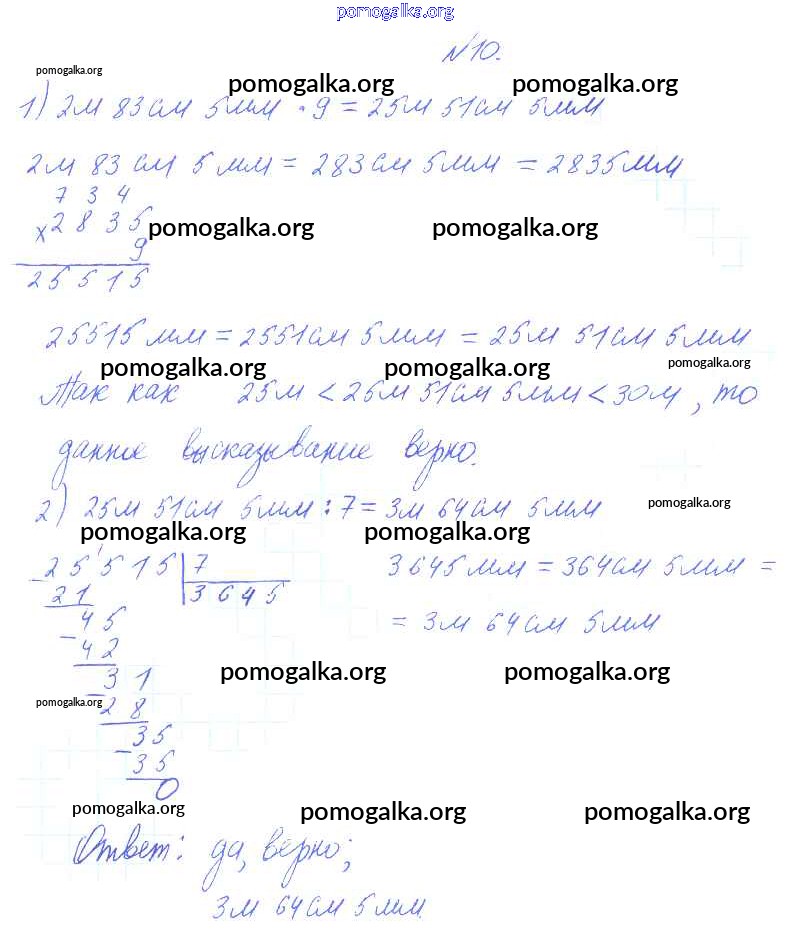 pomogalka.org
№10.
pomogalka.org
pomogalka.org pomogalka.org
1) 2м 83см 5мм · 9 = 25м 51см 5мм
2м 83 см 5 мм = 283см 5мм = 2835мм
7 3 4
x 2 8 3 5 pomogalka.org pomogalka.org
9
2 5 5 1 5
25515мм = 2551см 5мм = 25м 51см 5мм
pomogalka.org pomogalka.org pomogalka.org
Так как 25м < 26м 51см 5мм < 30м, то
данное высказывание верно.
2) 25м 51см 5мм : 7 = 3м 64см 5мм
pomogalka.org
pomogalka.org pomogalka.org
2 5 5 1 5 7 3645мм = 364см 5мм =
2 1 3 6 4 5
4 5 = 3м 64см 5мм
- 4 2
3 1 pomogalka.org pomogalka.org
- 2 8 pomogalka.org
3 5
- 3 5
0
pomogalka.org pomogalka.org pomogalka.org
Ответ: да, верно;
3м 64см 5мм.